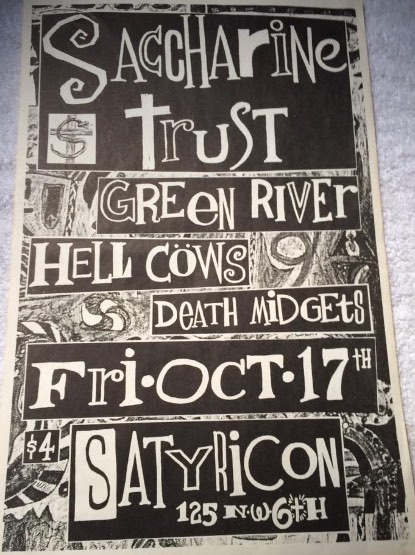 SACCHARINE
$ TRUST
GREEN RIVER
HELL CÖWS
DEATH MIDGETS
FRI•OCT•17TH
$4
SATYRICON
125 N•W 6TH